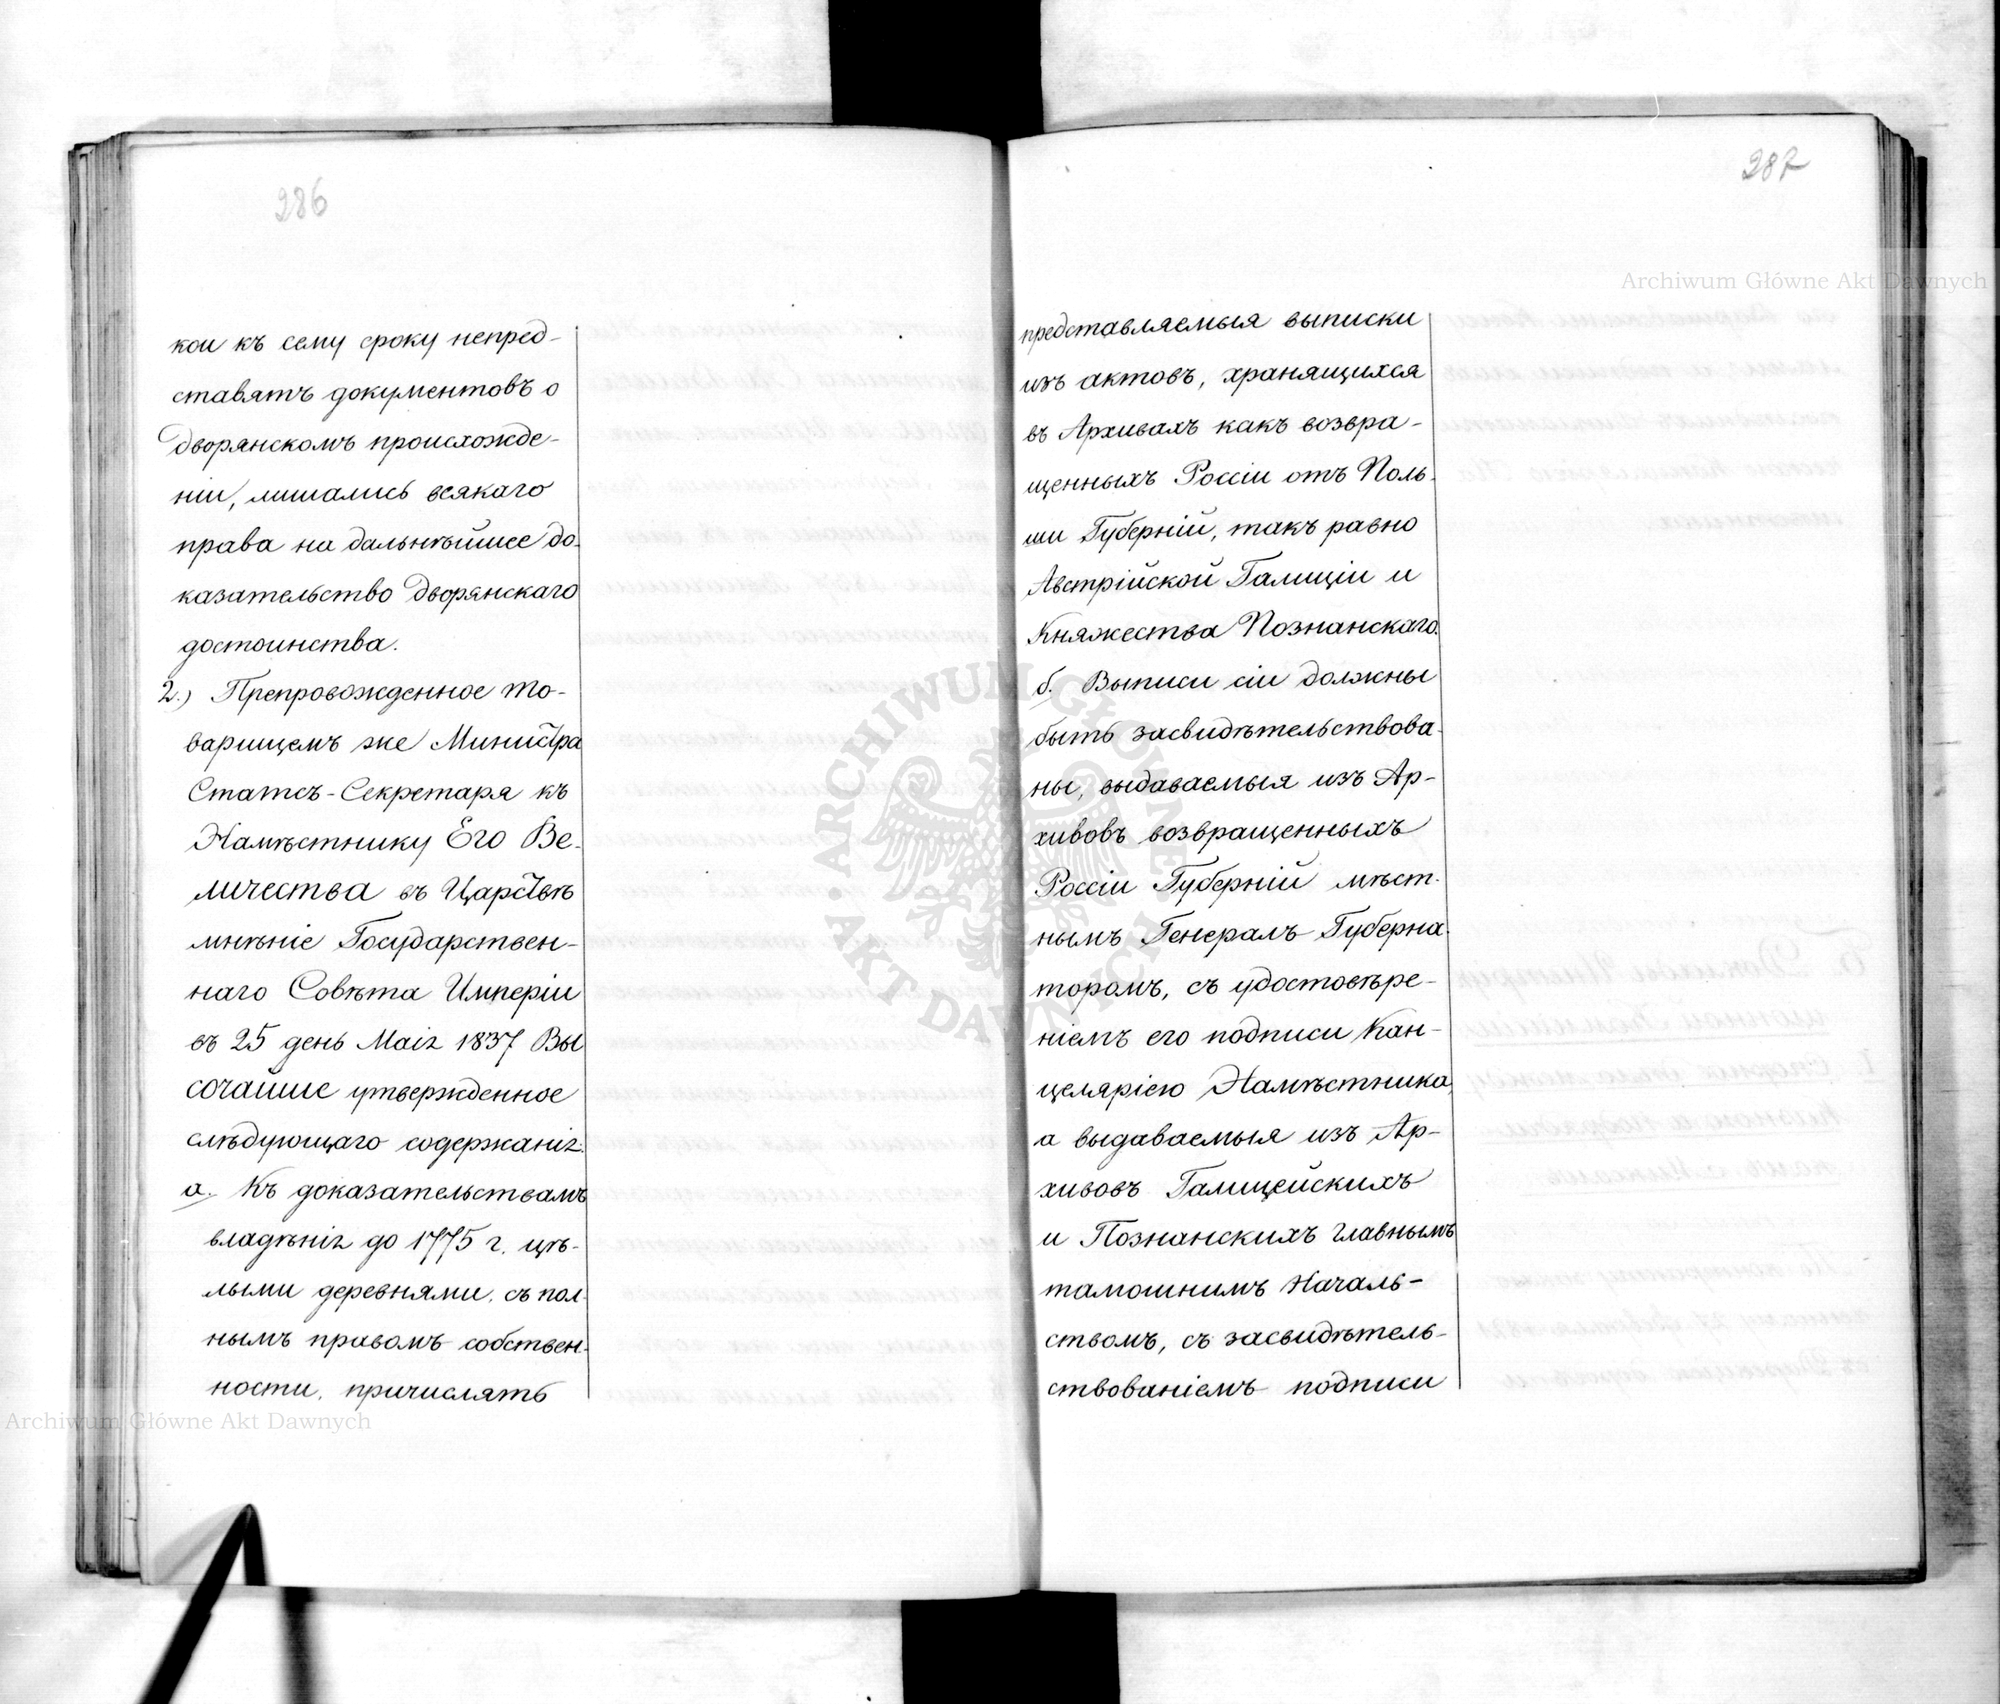 286
кои къ сему сроку непред-
ставятъ документовъ о
дворянскомъ происхожде-
ніи, лишались всякаго
права на дальнѣйшее до-
казательство дворянскаго
достоинства.
2.) Препровожденное то-
варищемъ же Министра
Статсъ-Секретаря къ
Намѣстнику Его Ве-
личества въ Царствѣ
мнѣніе Государствен-
наго Совѣта Имперіи
въ 25 день Маія 1837 Вы
сочайше утвержденное
слѣдующаго содержанія:
а. Къ доказательствамъ
владѣнія до 1775 г. цѣ-
лыми деревнями, съ пол-
нымъ правомъ собствен-
ности, причислять
287
представляемыя выписки
изъ актовъ, хранящихся
въ Архивахъ какъ возвра-
щенныхъ Россіи отъ Поль-
ши Губерній, такъ равно
Австрійской Галиціи и
Княжества Познанскаго.
б. Выписи сіи должны
быть засвидѣтельствова-
ны, выдаваемыя изъ Ар-
хивовъ возвращенныхъ
Россіи Губерній мѣст-
нымъ Генералъ Губерна-
торомъ, съ удостовѣре-
ніемъ его подписи Кан-
целяріею Намѣстника,
а выдаваемыя изъ Ар-
хивовъ Галицейскихъ
и Познанскихъ главнымъ
тамошнимъ Началь-
ствомъ, съ засвидѣтель-
ствованіемъ подписи
Archiwum Główne Akt Dawnych
Archiwum Główne Akt Dawnych
ARCHIWUM GŁÓWNE AKT DAWNYCH